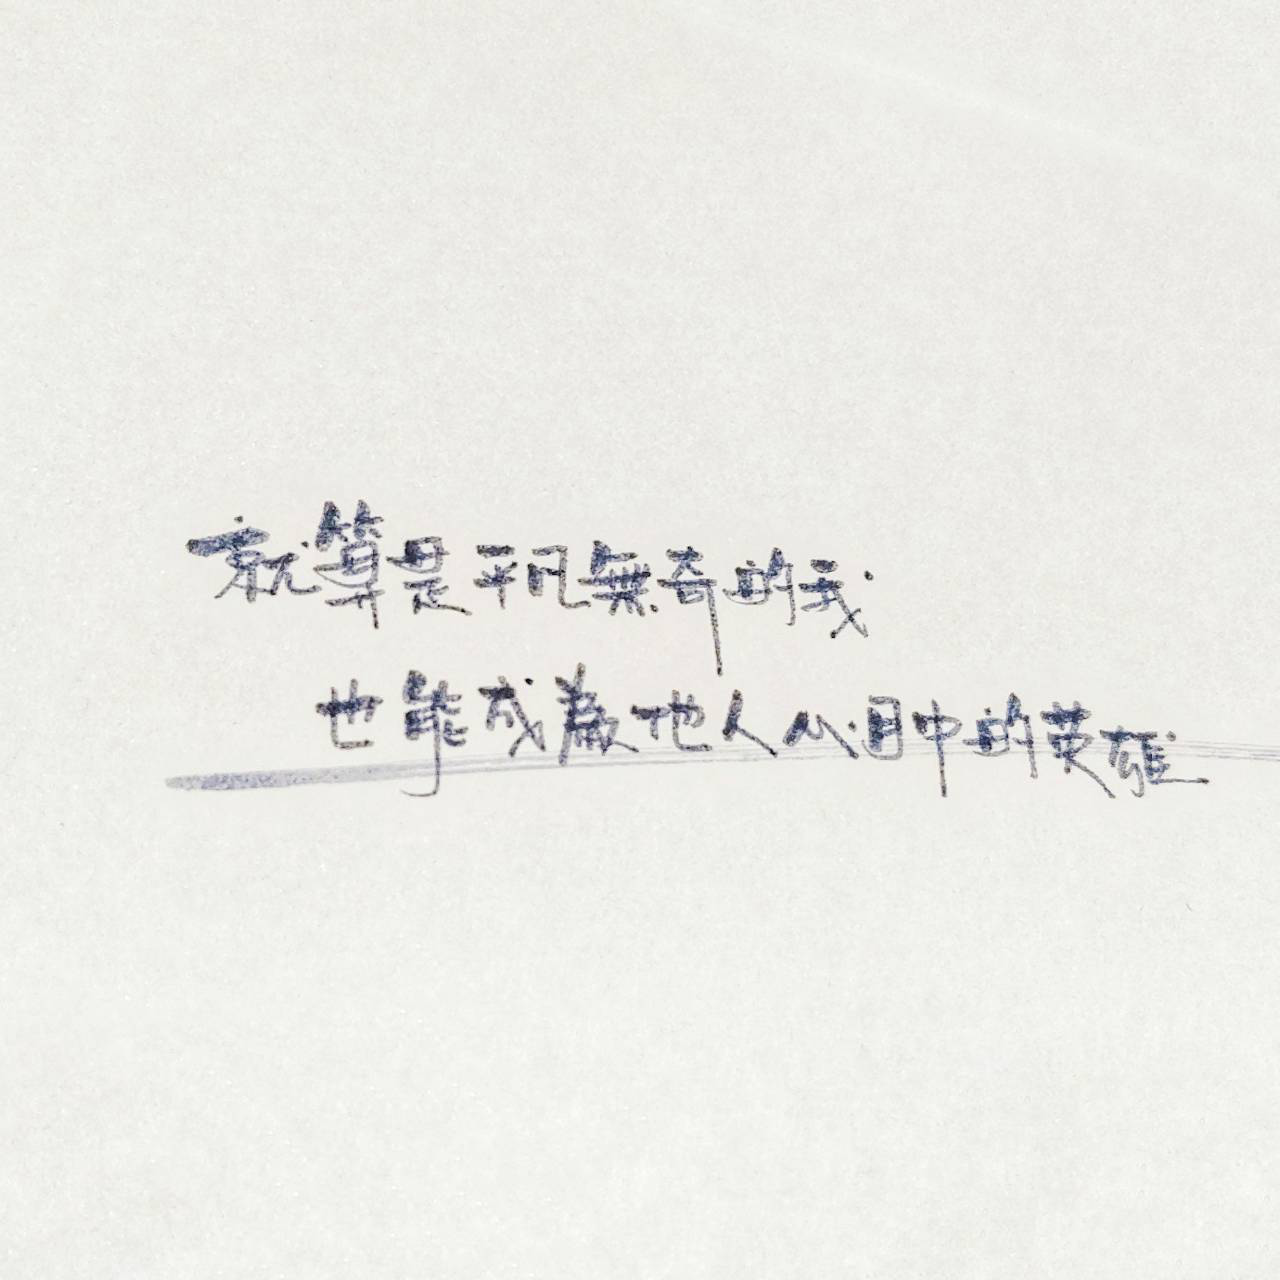 就算是平凡無奇的我
也能成為他人心目中的英雄